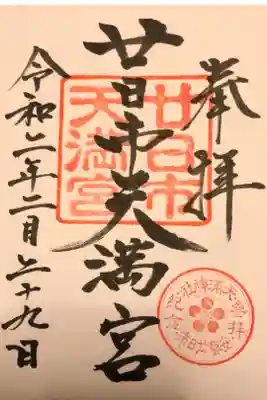 奉拝
廿日市天満宮
令和二年二月二十九日
廿日市
天満宮